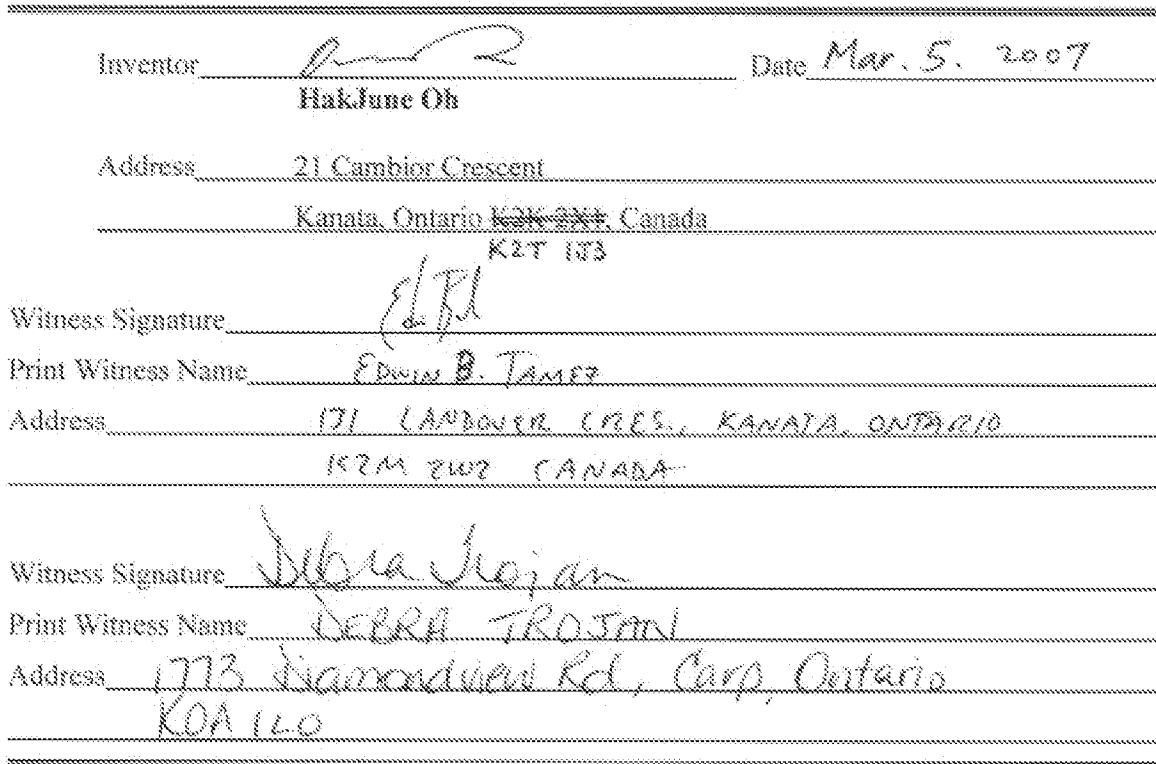 Inventor Date Mar. 5. 2007
HakJune Oh
Address 21 Cambior Crescent
Kanata, Ontario K2K 2X1, Canada
K2T 1J3
Witness Signature
Print Witness Name EDWIN B. TAMEZ
Address 171 LANDOVER CRES., KANATA, ONTARIO
K2M 2W2 CANADA
Witness Signature Debra Trojan
Print Witness Name DEBRA TROJAN
Address 1773 Diamondview Rd, Carp, Ontario
K0A 1L0